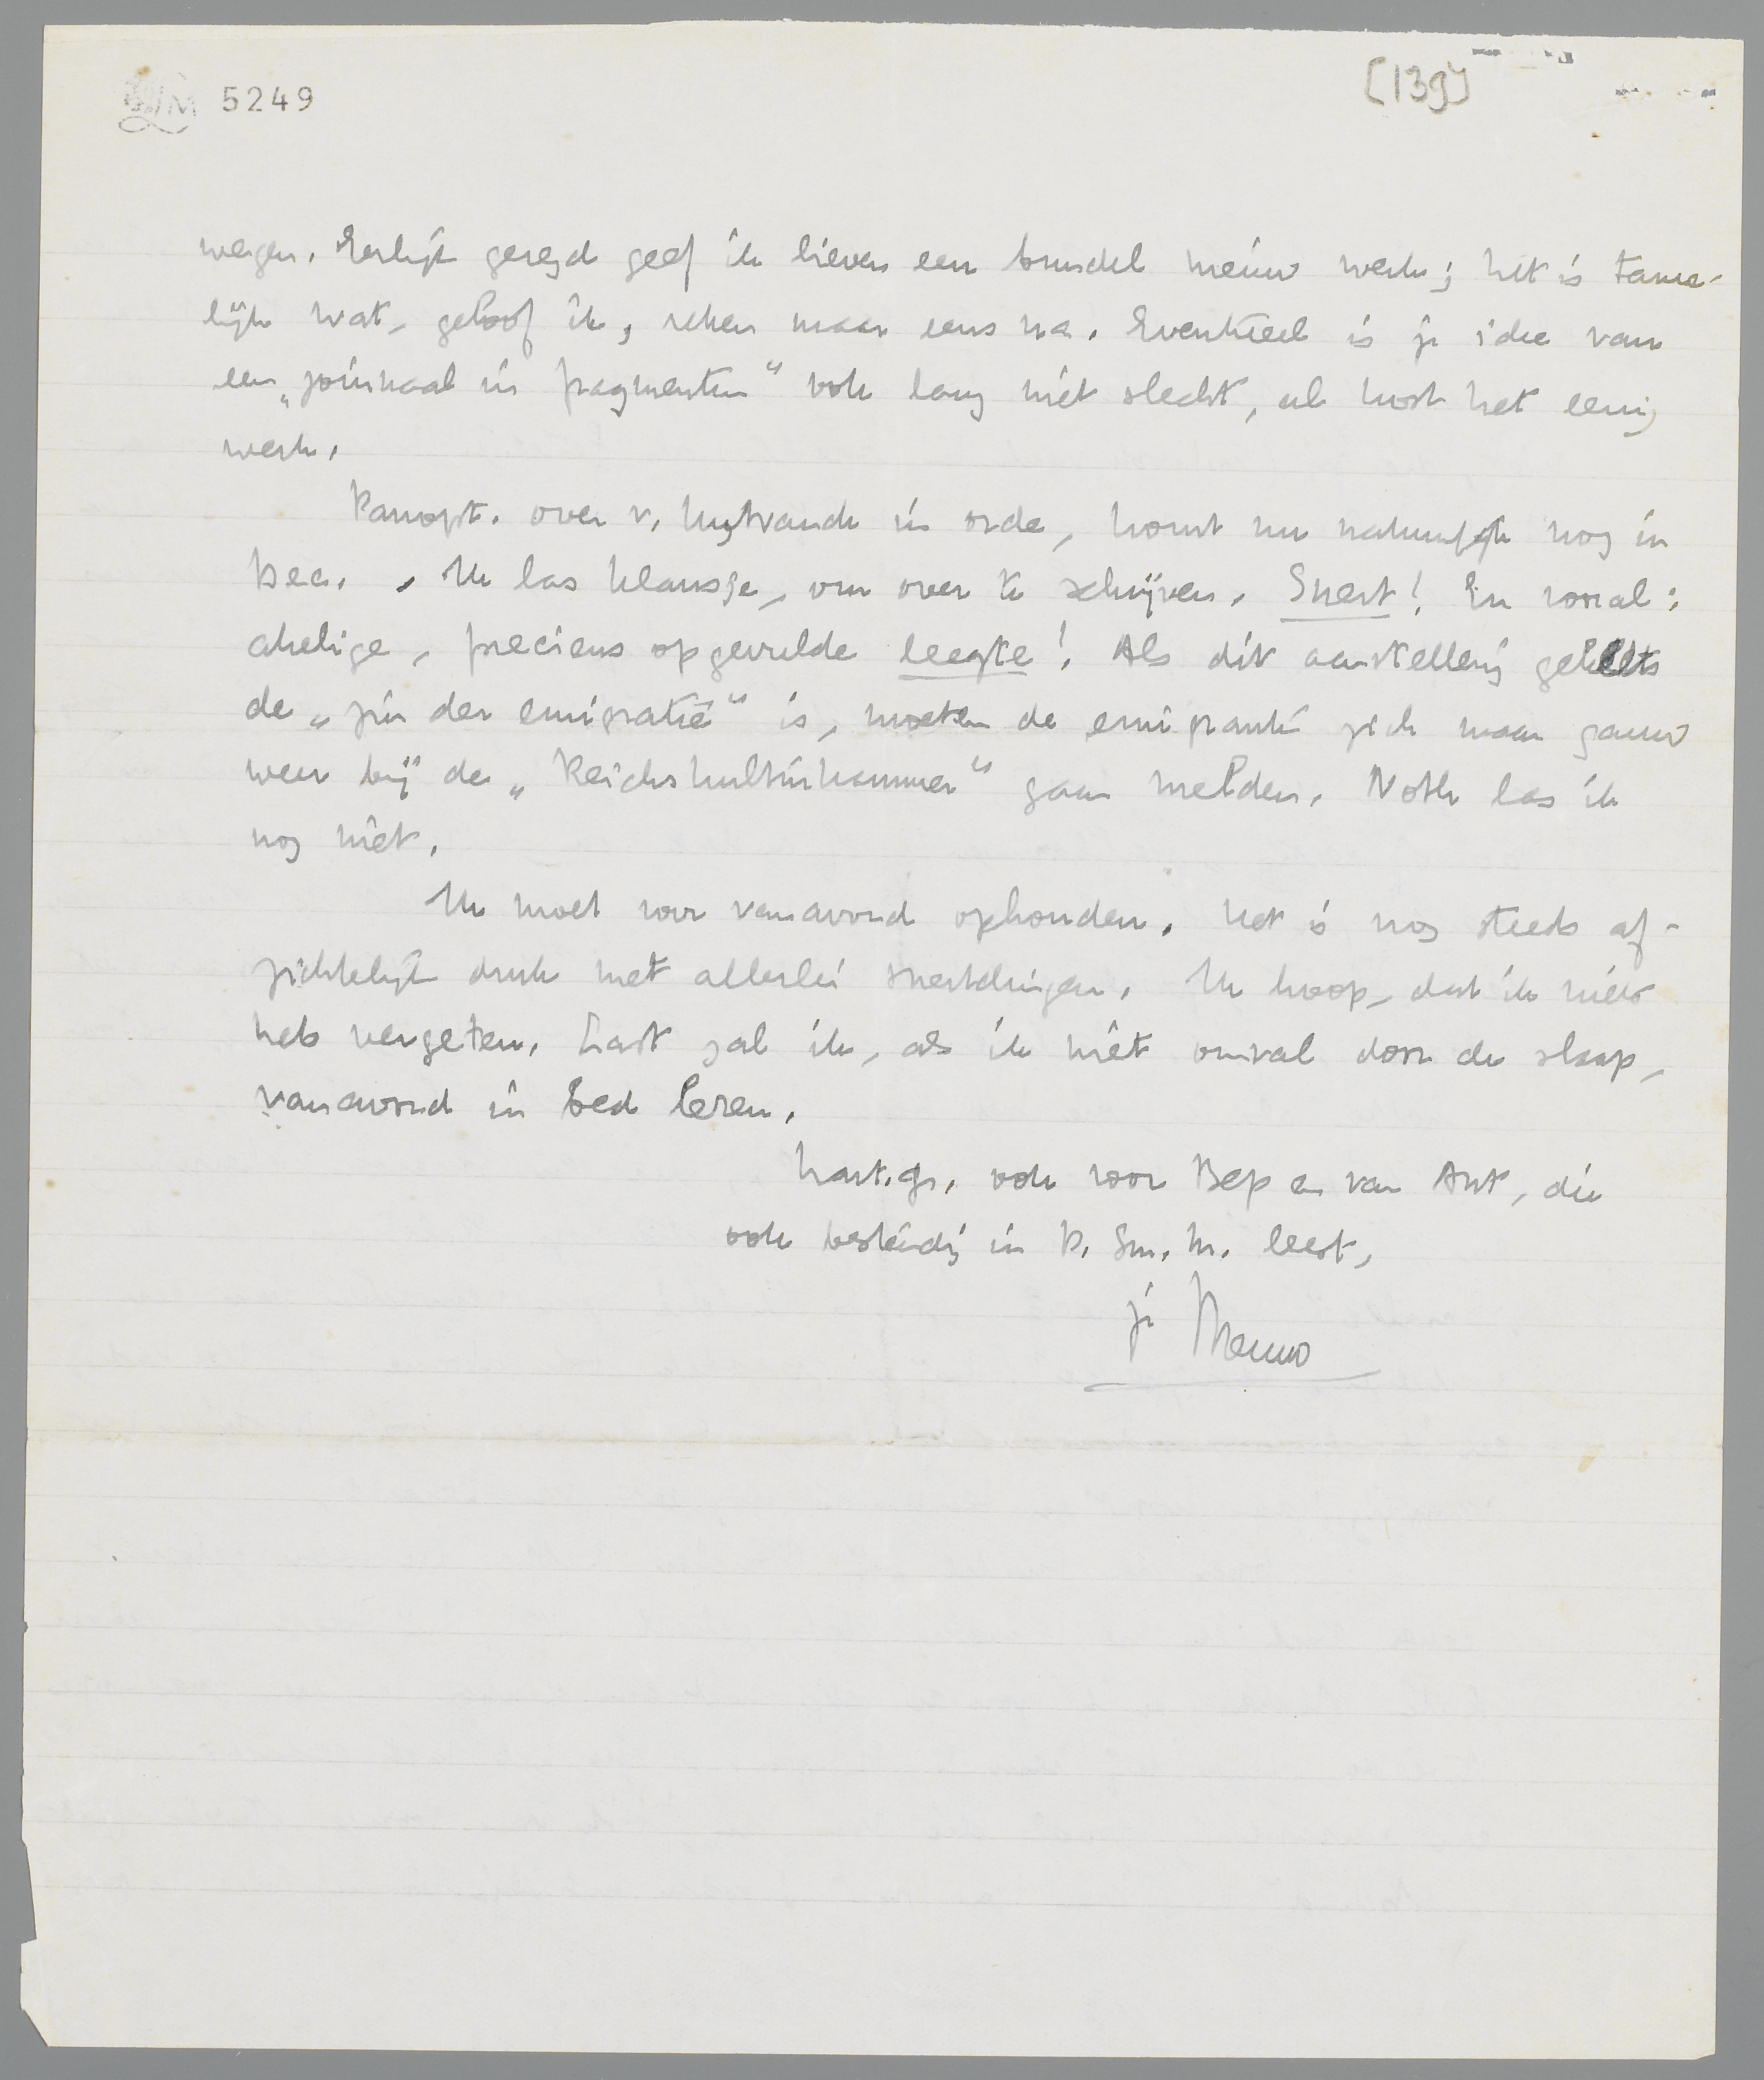 5249
[139]
wegen. Eerlijk gezegd geef ik liever een bundel nieuw werk; het is tame-
lijk wat, geloof ik, reken maar eens na. Eventueel is je idee van
een „journaal in fragmenten” ook lang niet slecht, al kost het eenig
werk.
Panopt. over v. in orde, komt nu natuurlijk nog in
Dec. Ik las Klausje, om over te schrijven. Snert! En vooral:
akelige, precieus opgevulde leegte! Als dit aanstellerij
de „zin der emigratie” is, moeten de emigranten zich maar gauw
weer bij de „Reichskulturkammer” gaan melden. Noth las ik
nog niet.
Ik moet voor vanavond ophouden. Het is nog steeds af-
zichtelijk druk met allerlei snertdingen. Ik hoop, dat ik niets
heb vergeten. Last zal ik, als ik niet omval door de slaap,
vanavond in bed lezen.
hart. gr., ook voor Bep en van Ant, die
ook bestendig in D. Sm. K. leest,
je Menno